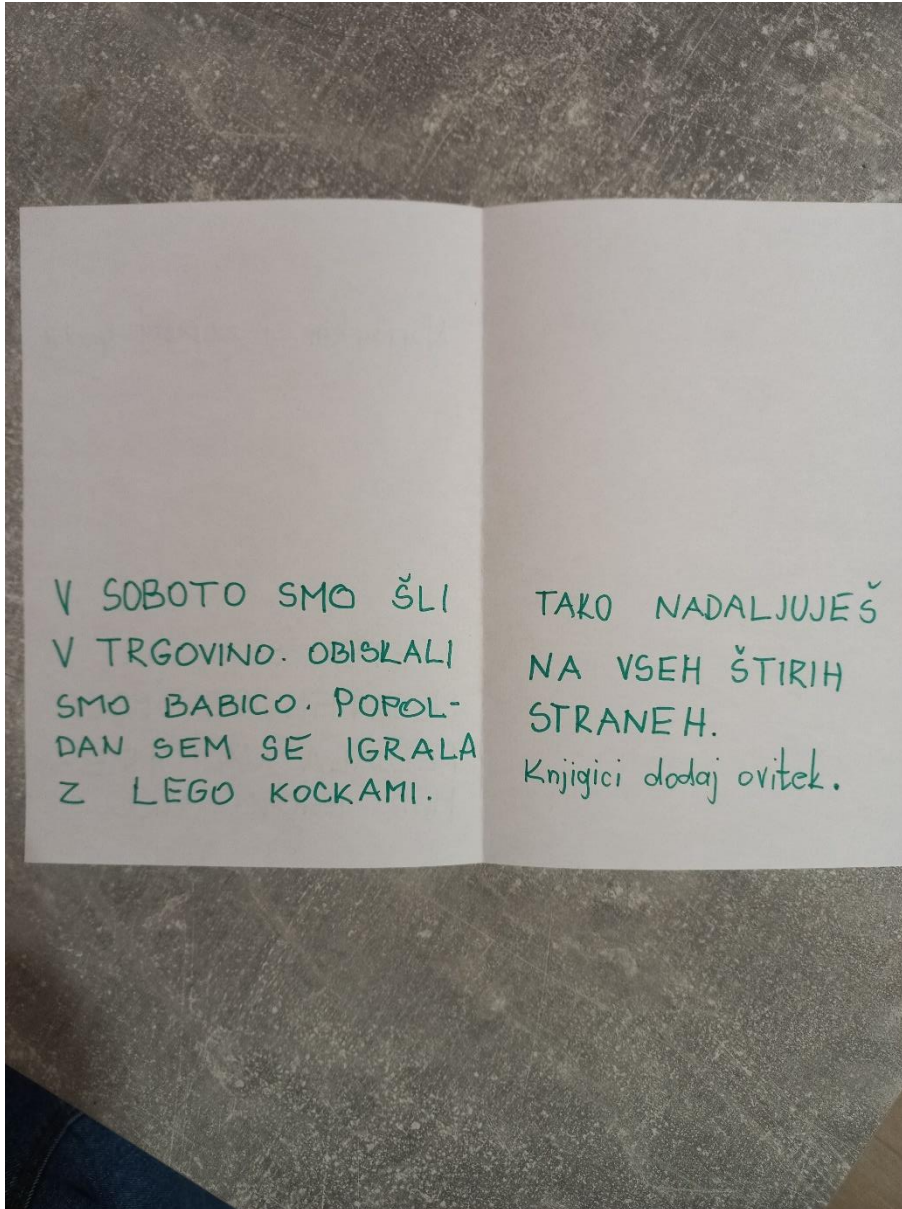 V SOBOTO SMO ŠLI
V TRGOVINO. OBISKALI
SMO BABICO. POPOL-
DAN SEM SE IGRALA
Z LEGO KOCKAMI.
TAKO NADALJUJEŠ
NA VSEH ŠTIRIH
STRANEH.
Knjigici dodaj ovitek.